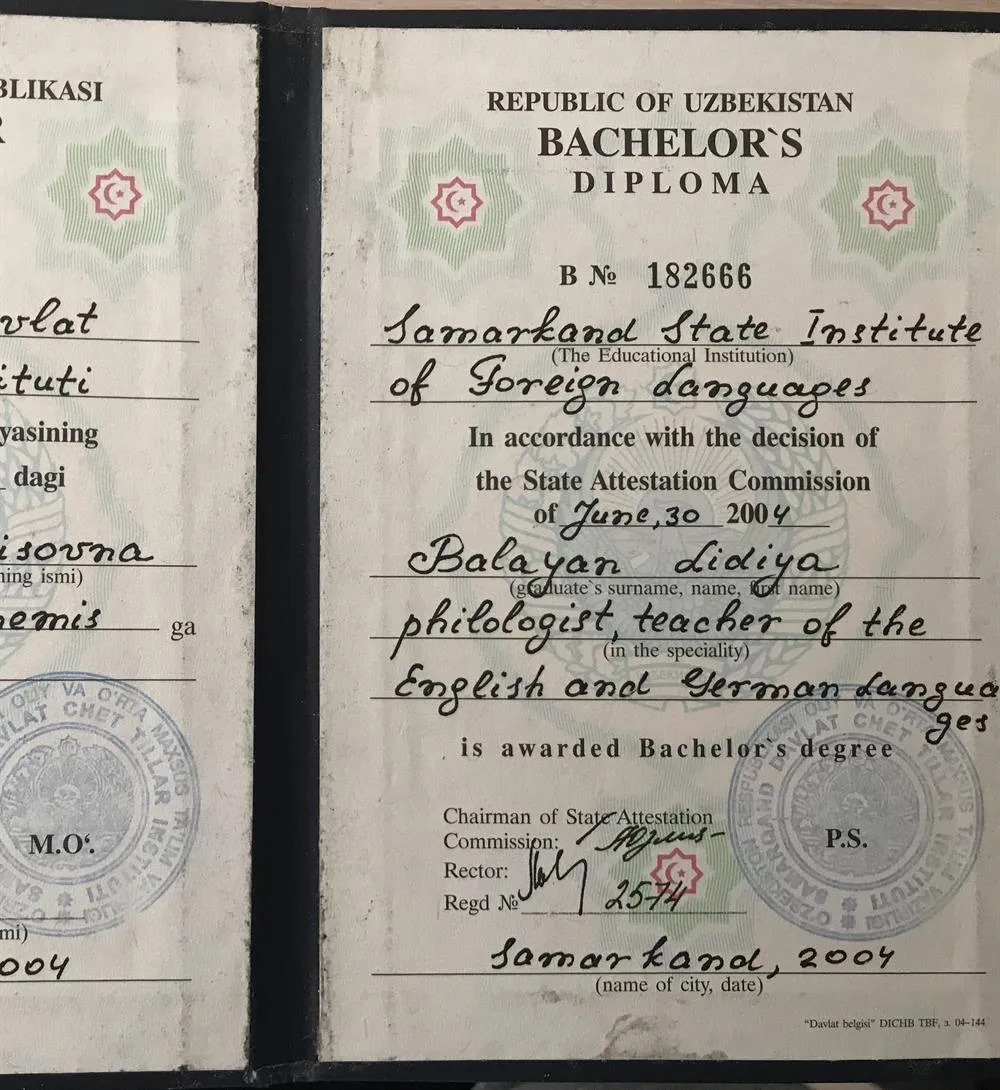 BLIKASI
R
vlat
ituti
yasining
dagi
isovna
ning ismi)
nemis ga
M.O‘.
mi)
004
REPUBLIC OF UZBEKISTAN
BACHELOR`S
DIPLOMA
B № 182666
Samarkand State Institute
(The Educational Institution)
of Foreign Languages
In accordance with the decision of
the State Attestation Commission
of June, 30 2004
Balayan Lidiya
(graduate`s surname, name, first name)
philologist, teacher of the
(in the speciality)
English and German Langua
ges
is awarded Bachelor`s degree
Chairman of State Attestation
Commission:
Rector:
Regd № 2574
P.S.
Samarkand, 2004
(name of city, date)
“Davlat belgisi” DICHB TBF, з. 04–144